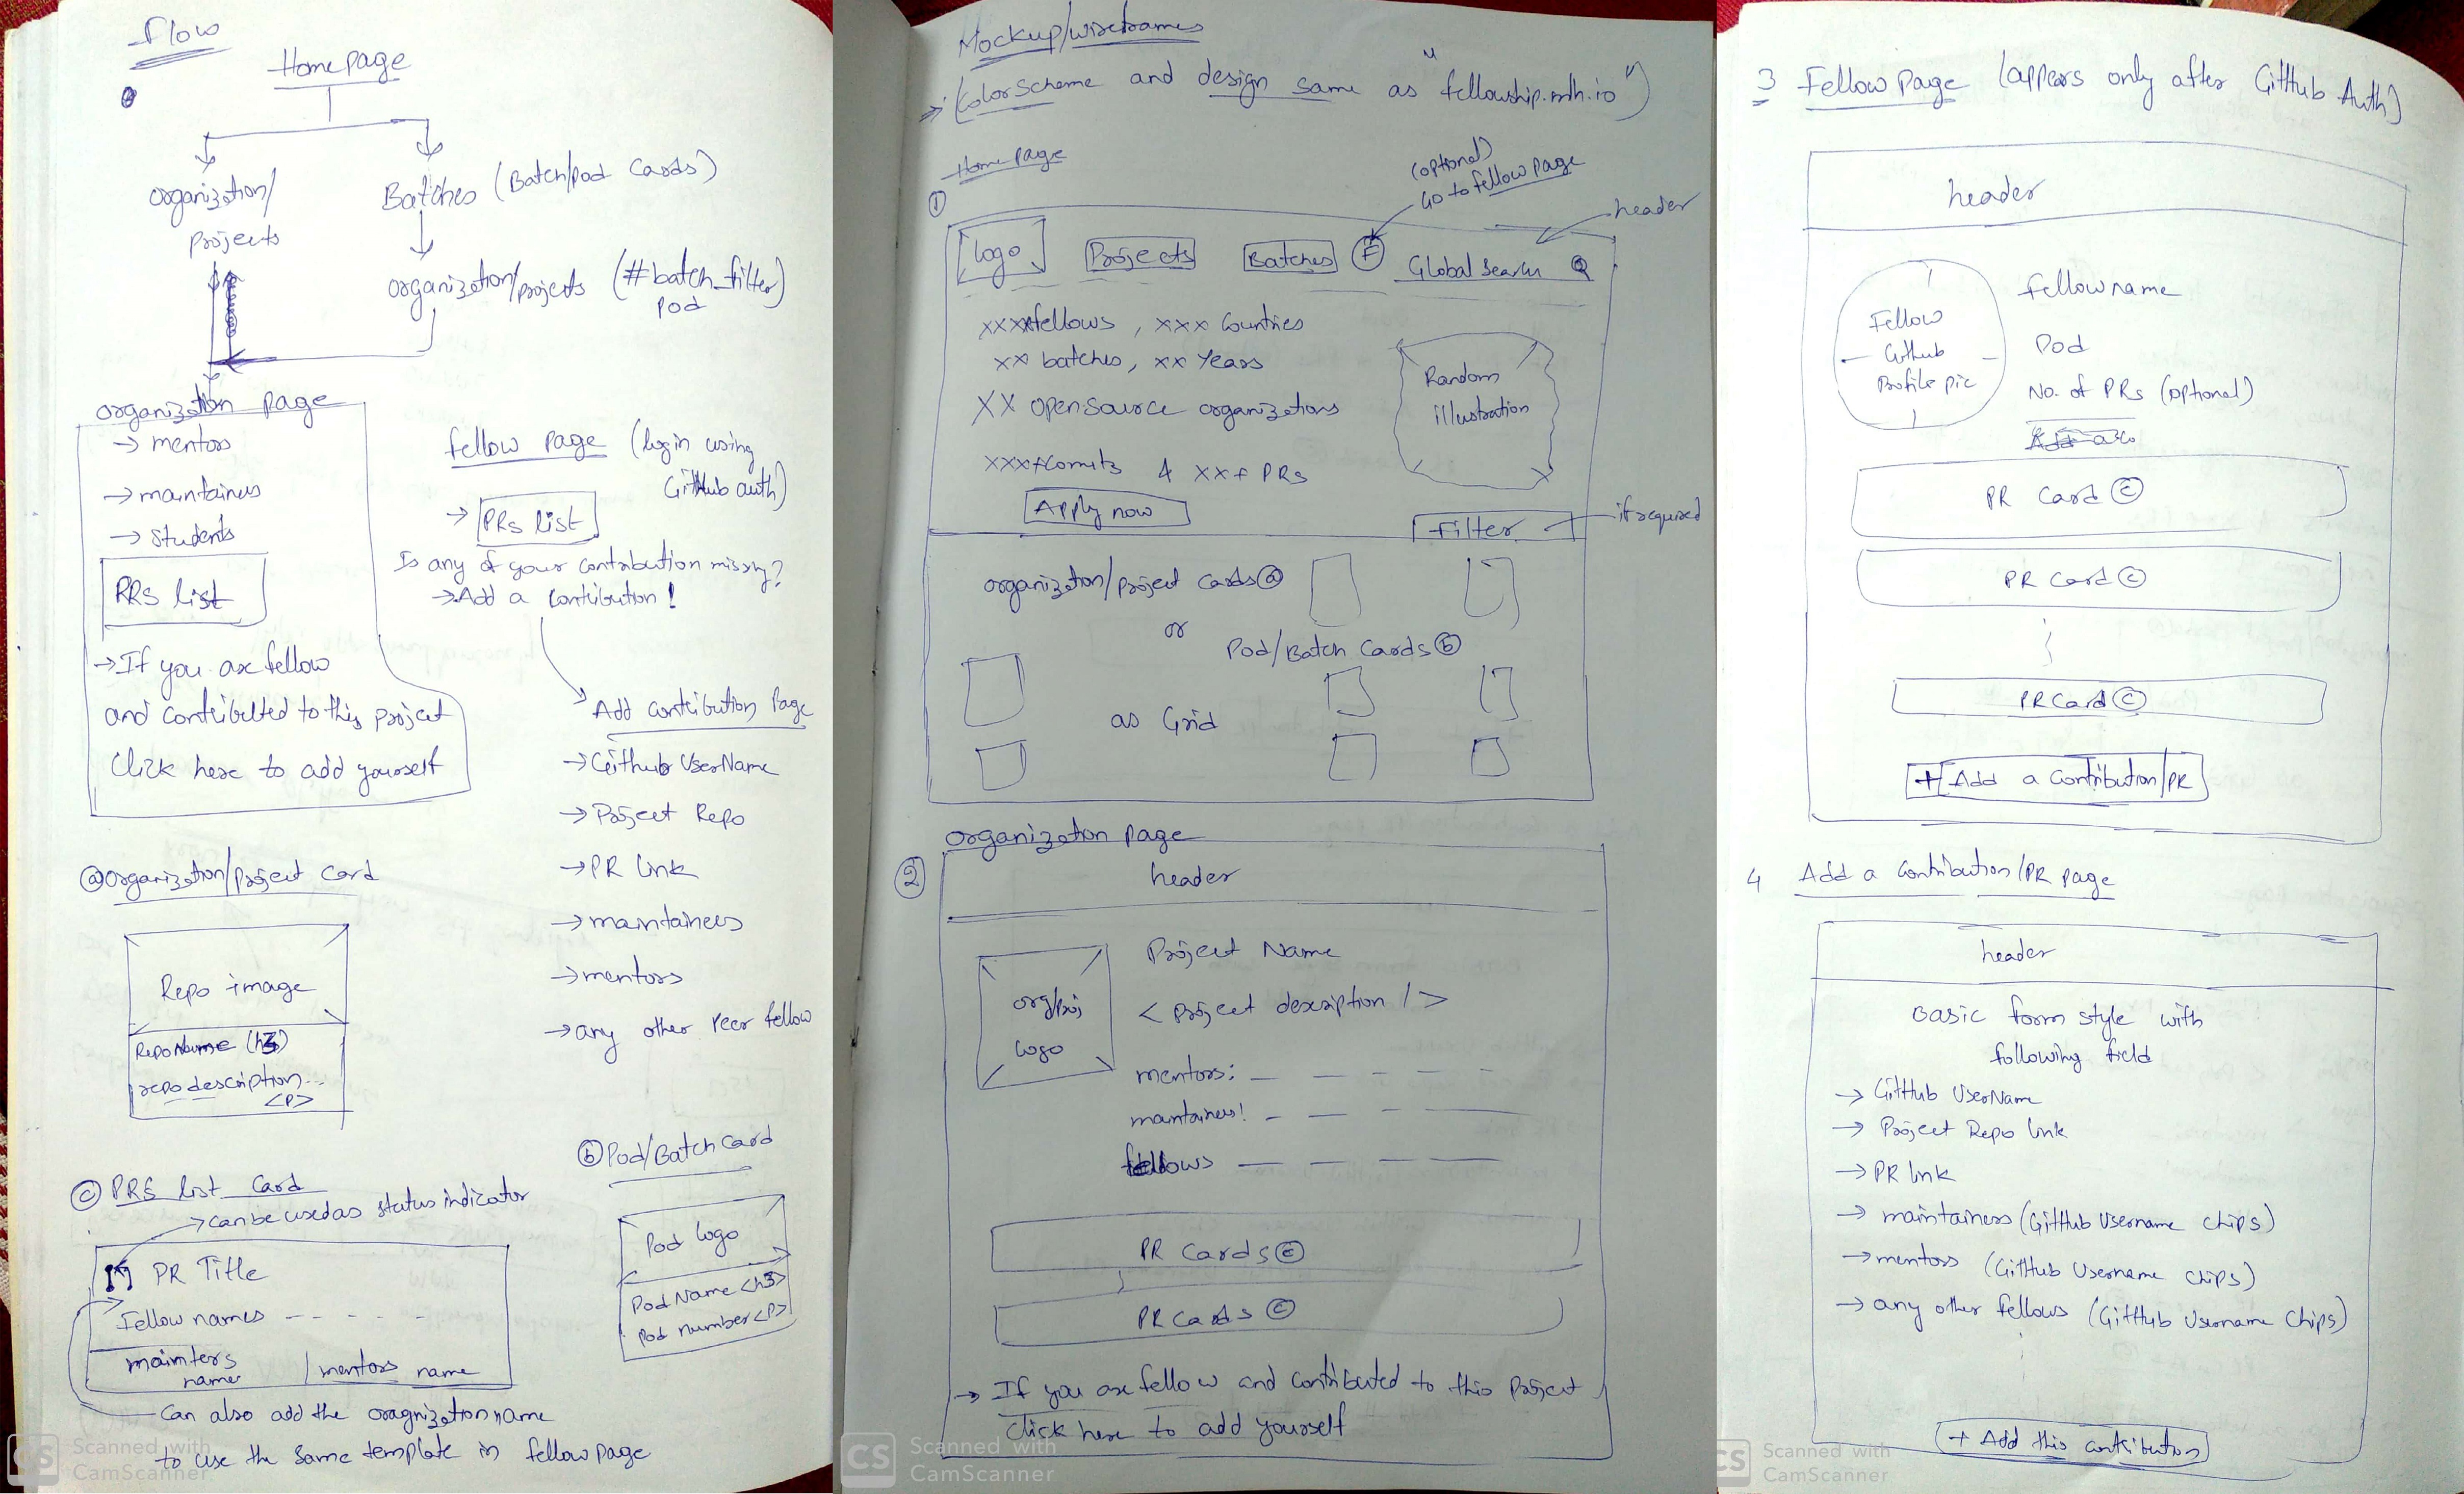 Flow
Homepage
organization/
projects
Batches (Batch/pod Cards)
organization/projects (#batch_filter)
pod
organization page
→ mentors
→ maintainers
→ students
PRs list
→ If you are fellow
and contributed to this project
Click here to add yourself
fellow page (login using
GitHub auth)
→ PRs list
Is any of your contribution missing?
→ Add a contribution!
Add contribution Page
→ Github UserName
→ Project Repo
→ PR link
→ maintainers
→ mentors
→ any other Peer fellow
ⓐ organization/project card
Repo image
RepoName (h3)
repo description...
<P>
ⓑ Pod/Batch card
Pod logo
Pod Name <h3>
Pod number <P>
ⓒ PRs list Card
→ can be used as status indicator
PR Title
Fellow names - - - -
mainters
name
mentors name
Can also add the oragnization name
to use the same template in fellow page
CS Scanned with
CamScanner
Mockup/wireframes
→ (ColorScheme and design same as "fellowship.mlh.io")
Home page
(optional)
Go to fellow page
header
①
logo
Projects
Batches
F
Global Search
xxxx fellows, xxx Countries
xx batches, xx Years
XX opensource organizations
xxx+ Comits & xx+ PRs
Random
illustration
Apply now
Filter
if required
organization/project cards ⓐ
or
Pod/Batch Cards ⓑ
as Grid
organization page
②
header
org/proj
logo
Project Name
< project description />
mentors: — — - — -
maintainers: - — - —
fellows — — — —
PR Cards ⓒ
PR Cards ⓒ
→ If you are fellow and contributed to this Project
click here to add yourself
CS Scanned with
CamScanner
3 Fellow Page (appears only after GitHub Auth)
header
Fellow
Github
Profile pic
fellow name
Pod
No. of PRs (optional)
PR Card ⓒ
PR Card ⓒ
PR Card ⓒ
+ Add a Contribution/PR
4 Add a contribution/PR page
header
Basic form style with
following field
→ GitHub UserName
→ Project Repo link
→ PR link
→ maintainers (GitHub Username chips)
→ mentors (GitHub Username chips)
→ any other fellows (GitHub Username Chips)
+ Add this contribution
CS Scanned with
CamScanner